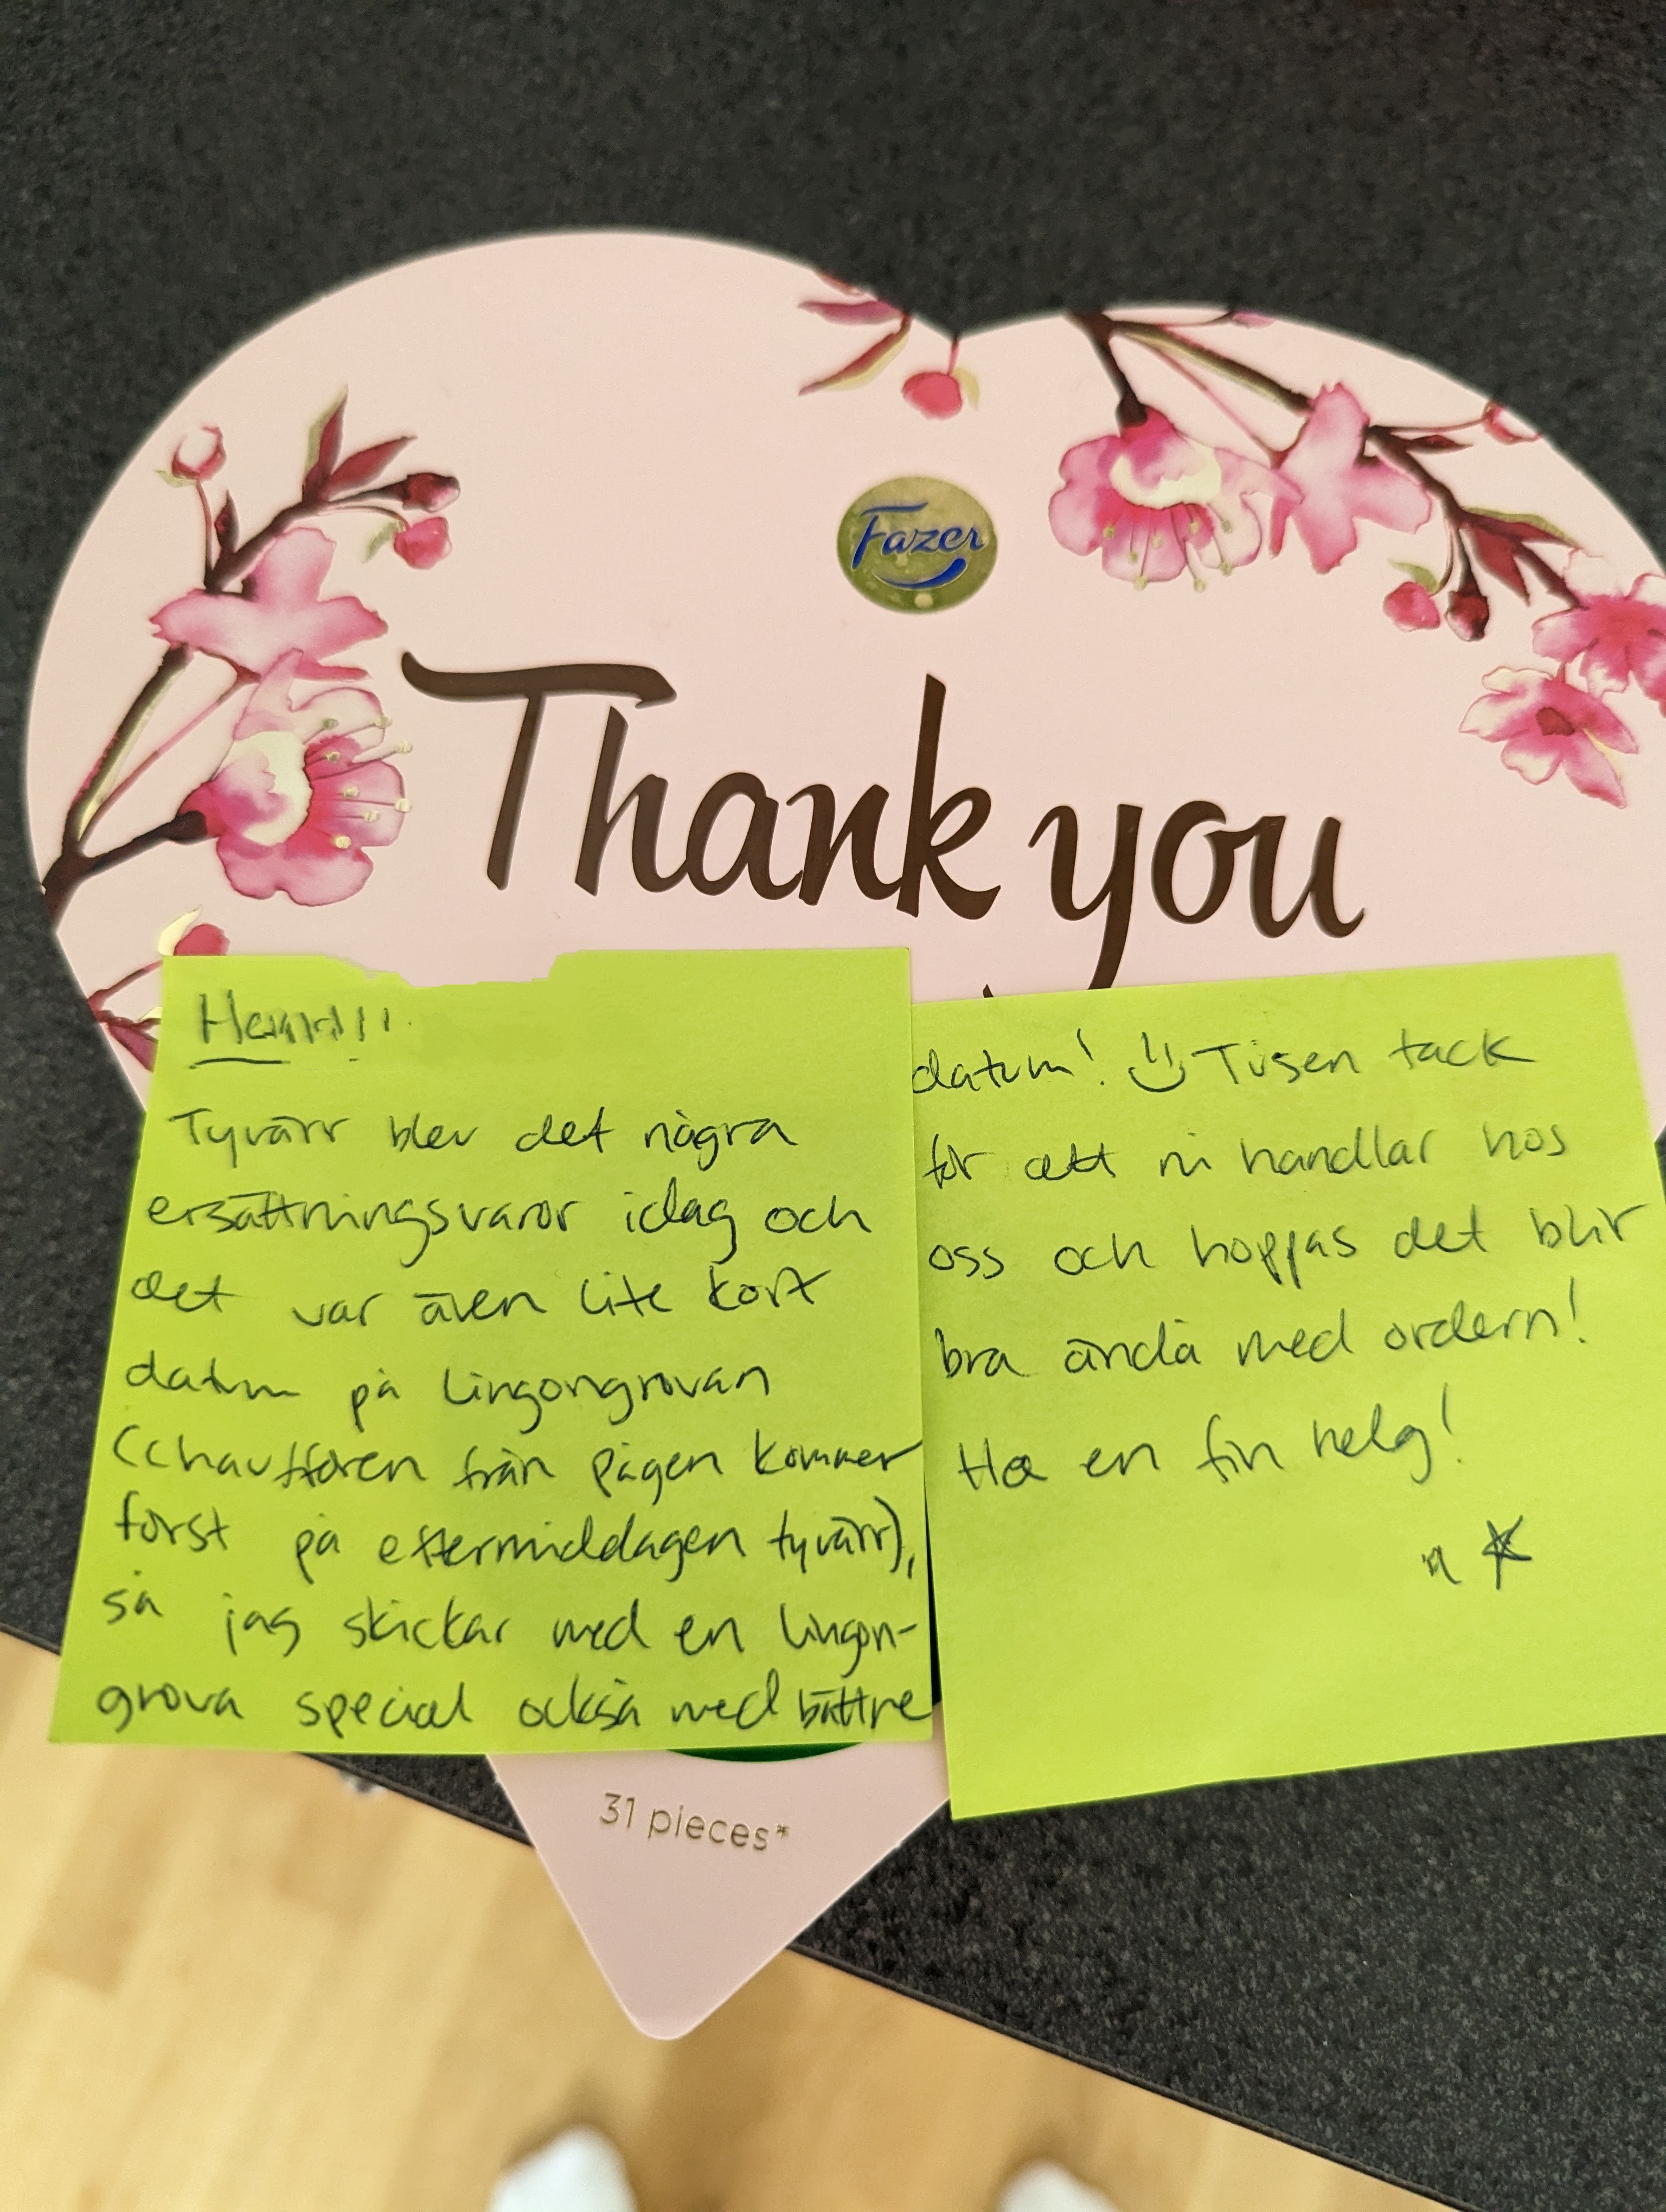 Fazer
Thank you
Tyvärr blev det några
ersättningsvaror idag och
det var även lite kort
datum på Lingongrovan
(chauffören från pågen kommer
först på eftermiddagen tyvärr),
så jag skickar med en lingon-
grova special också med bättre
datum! Tusen tack
för att ni handlar hos
oss och hoppas det blir
bra ändå med ordern!
Ha en fin helg!
31 pieces*